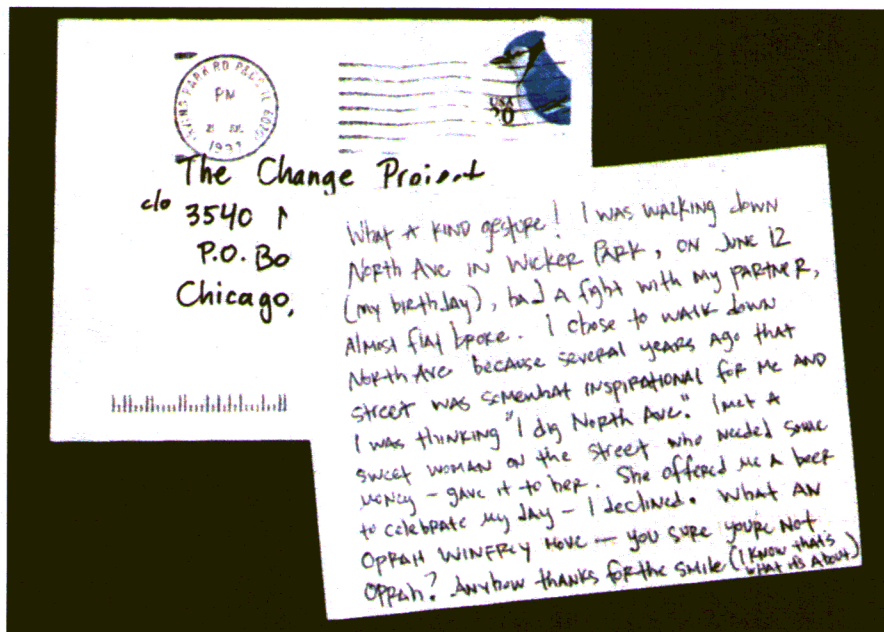 PM
1997
USA
20
The Change Project
c/o 3540 N
P.O. Bo
Chicago,
What A KIND gesture! I was walking down
North Ave in Wicker Park, on June 12
(my birthday), had a fight with my partner,
Almost flat broke. I chose to walk down
North Ave because several years ago that
street was somewhat inspirational for me and
I was thinking "I dig North Ave." I met a
sweet woman on the street who needed some
money – gave it to her. She offered me a beer
to celebrate my day – I declined. What an
Oprah Winfrey move – you sure youre not
Oprah? Anyhow thanks for the smile (I know that's
what its about)